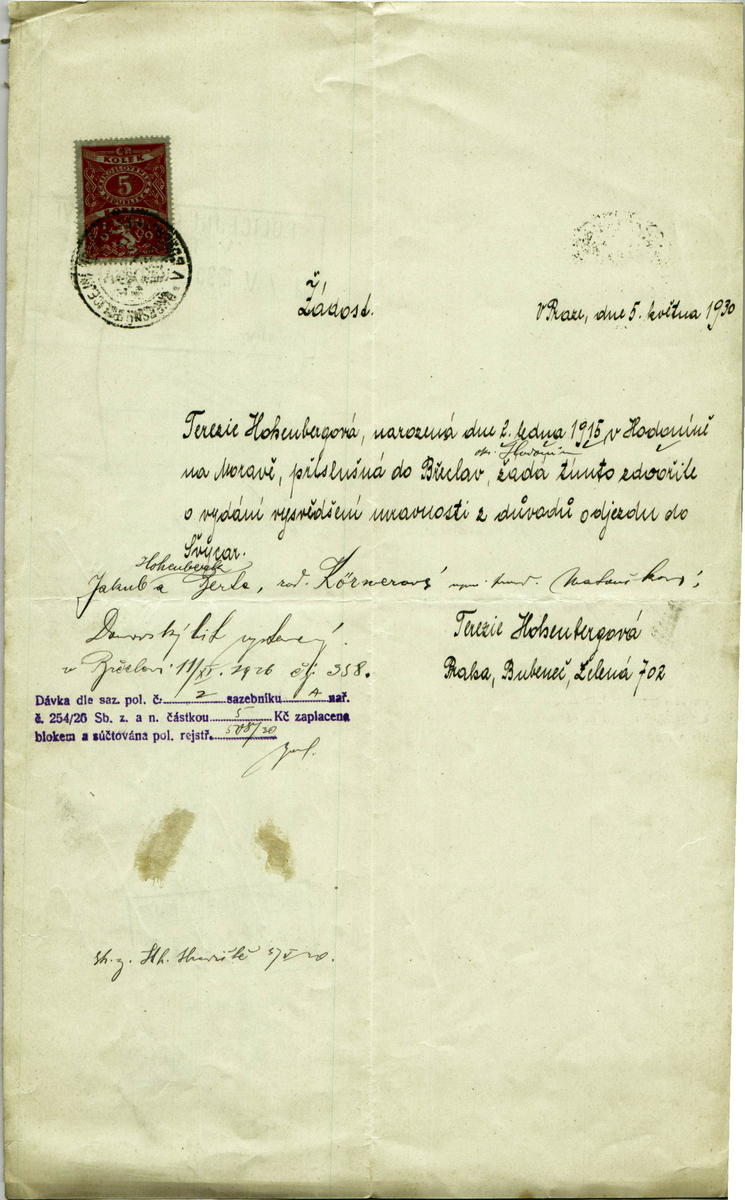 KOLEK
5
Žádost.
V Praze, dne 5. května 1930
Terezie Hohenbergová, narozená dne 2. ledna 1915, v Hodoníně
Hodonín
na Moravě, příslušná do Břeclav, žádá tímto zdvořile
o vydání vysvědšení mravnosti z důvadů odjezdu do
Švýcar.
Hohenberg
Jakub a Berta, roz. Körnerová
Domovský list vystavený
v Břeclavi 11/XI. 1926 čj. 358.
Terezie Hohenbergová
Praha, Bubeneč, Zelená 702
Dávka dle saz. pol. č. 2 sazebníku A nař.
č. 254/26 Sb. z. a n. částkou 5 Kč zaplacena
blokem a súčtována pol. rejstř.